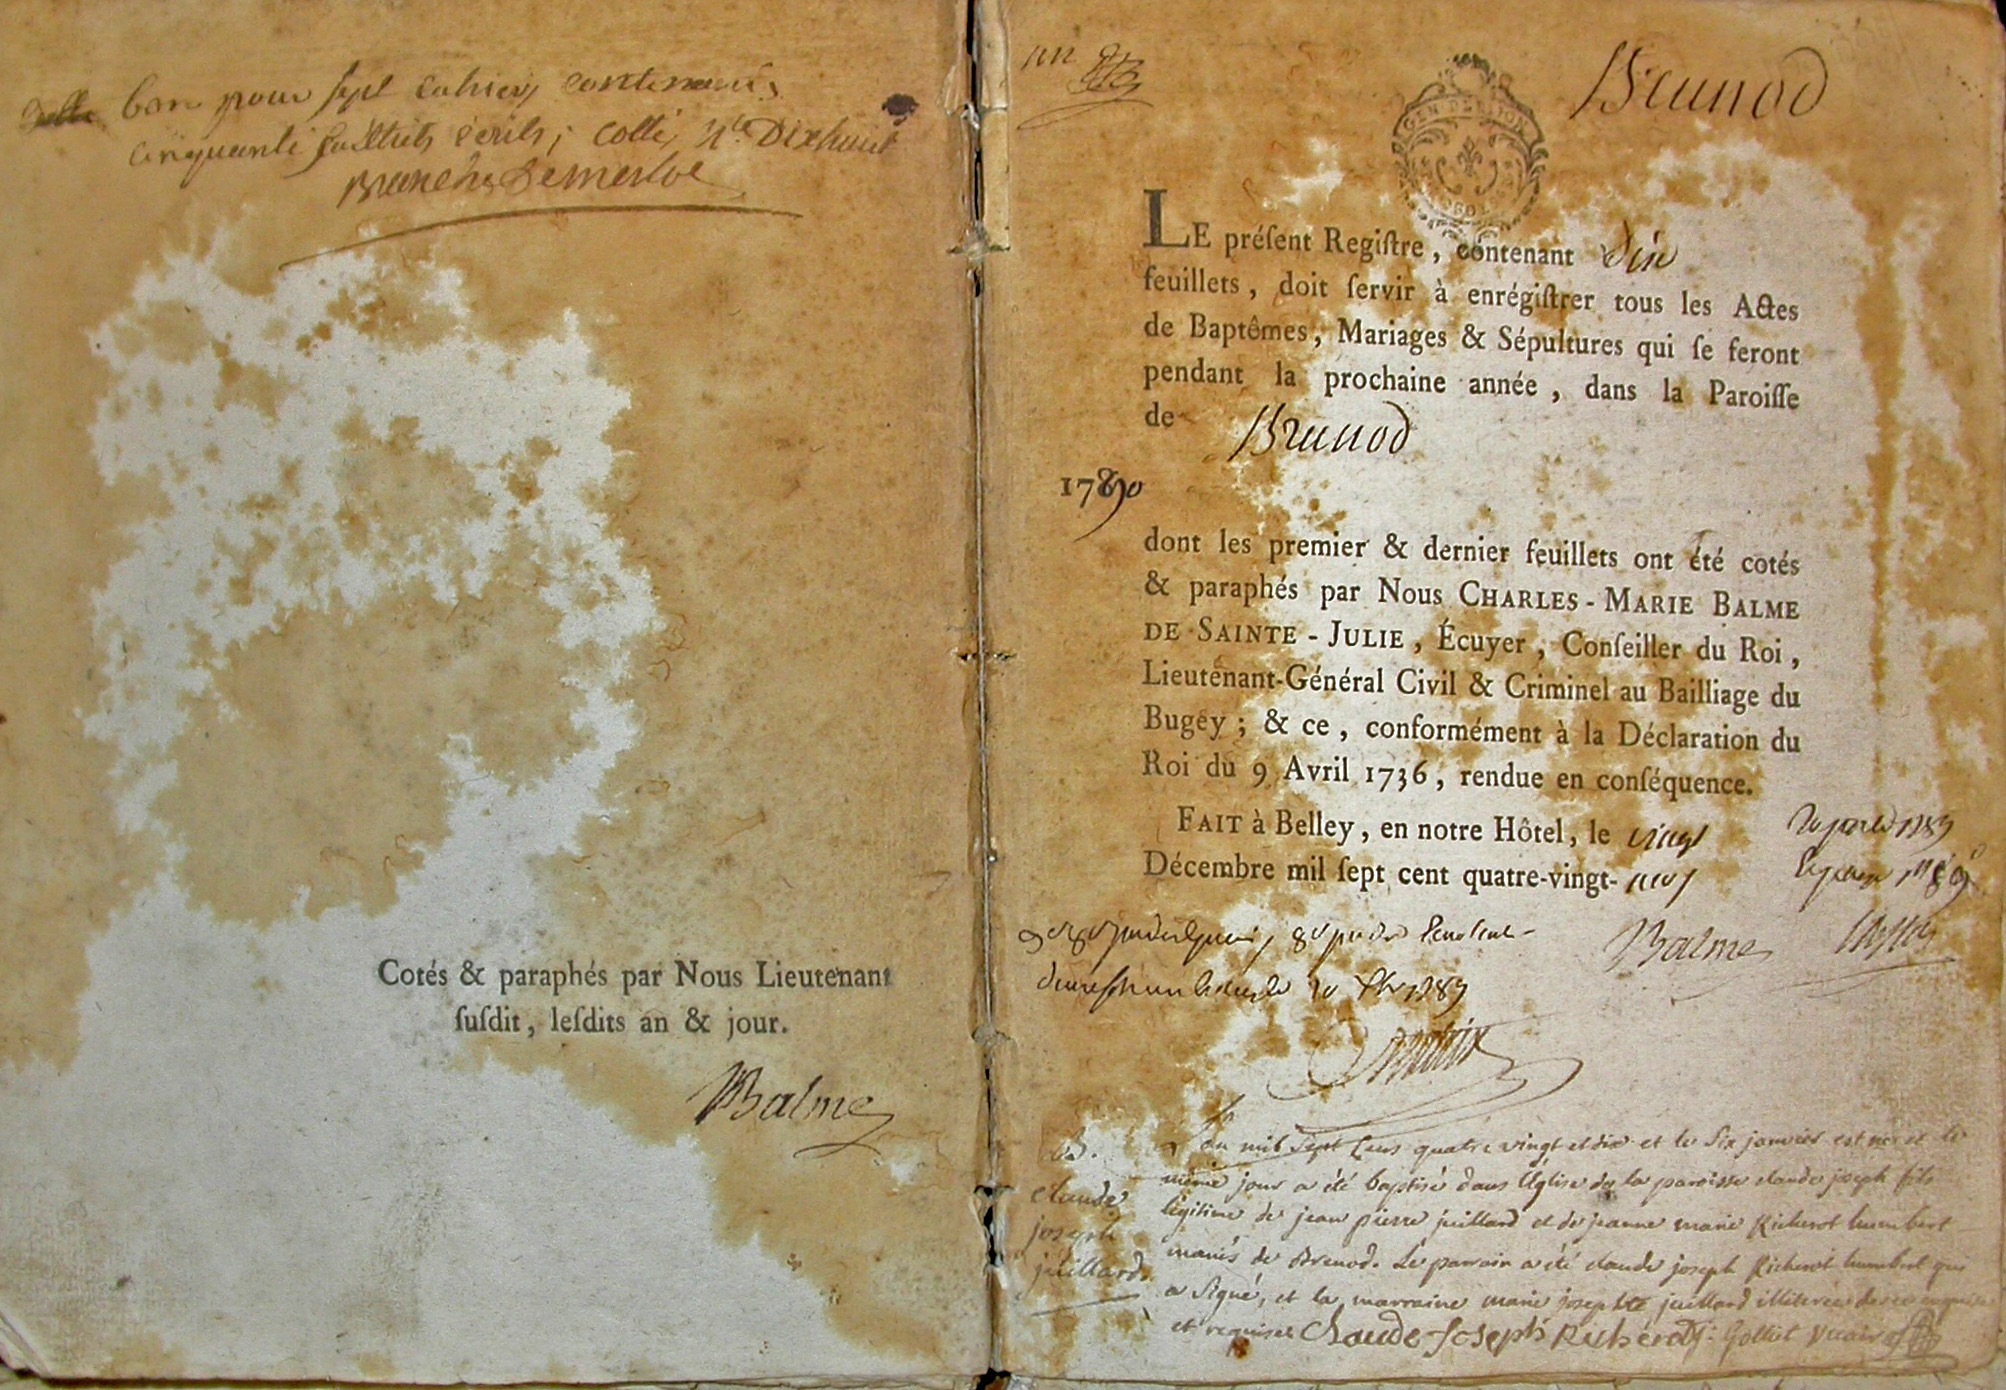 bon pour sept cahiers contenants
cinquante feuillets écrits, cotté
Cotés & paraphés par Nous Lieutenant
ſuſdit, leſdits an & jour.
Balme
un
Brunod
GEN DE LION
LE préſent Regiſtre, contenant dix
feuillets, doit ſervir à enrégiſtrer tous les Actes
de Baptêmes, Mariages & Sépultures qui ſe feront
pendant la prochaine année, dans la Paroiſſe
de Brunod
1790
dont les premier & dernier feuillets ont été cotés
& paraphés par Nous CHARLES-MARIE BALME
DE SAINTE-JULIE, Écuyer, Conſeiller du Roi,
Lieutenant-Général Civil & Criminel au Bailliage du
Bugey; & ce, conformément à la Déclaration du
Roi du 9 Avril 1736, rendue en conſéquence.
FAIT à Belley, en notre Hôtel, le vingt
Décembre mil ſept cent quatre-vingt-neuf
Balme
B.
claude
joseph
juillard
L'an mil sept cens quatre vingt et dix et le six janvier est né et le
même jour a été baptisé dans l'église de la paroisse claude joseph fils
légitime de jean pierre juillard et de jeanne marie Richerot humbert
mariés de Brenod. Le parrain a été claude joseph Richerot humbert qui
a signé, et la marraine marie josephte juillard illiterée de ce enquise
et requise. Claude-Joseph Richerot. Golliet vicaire